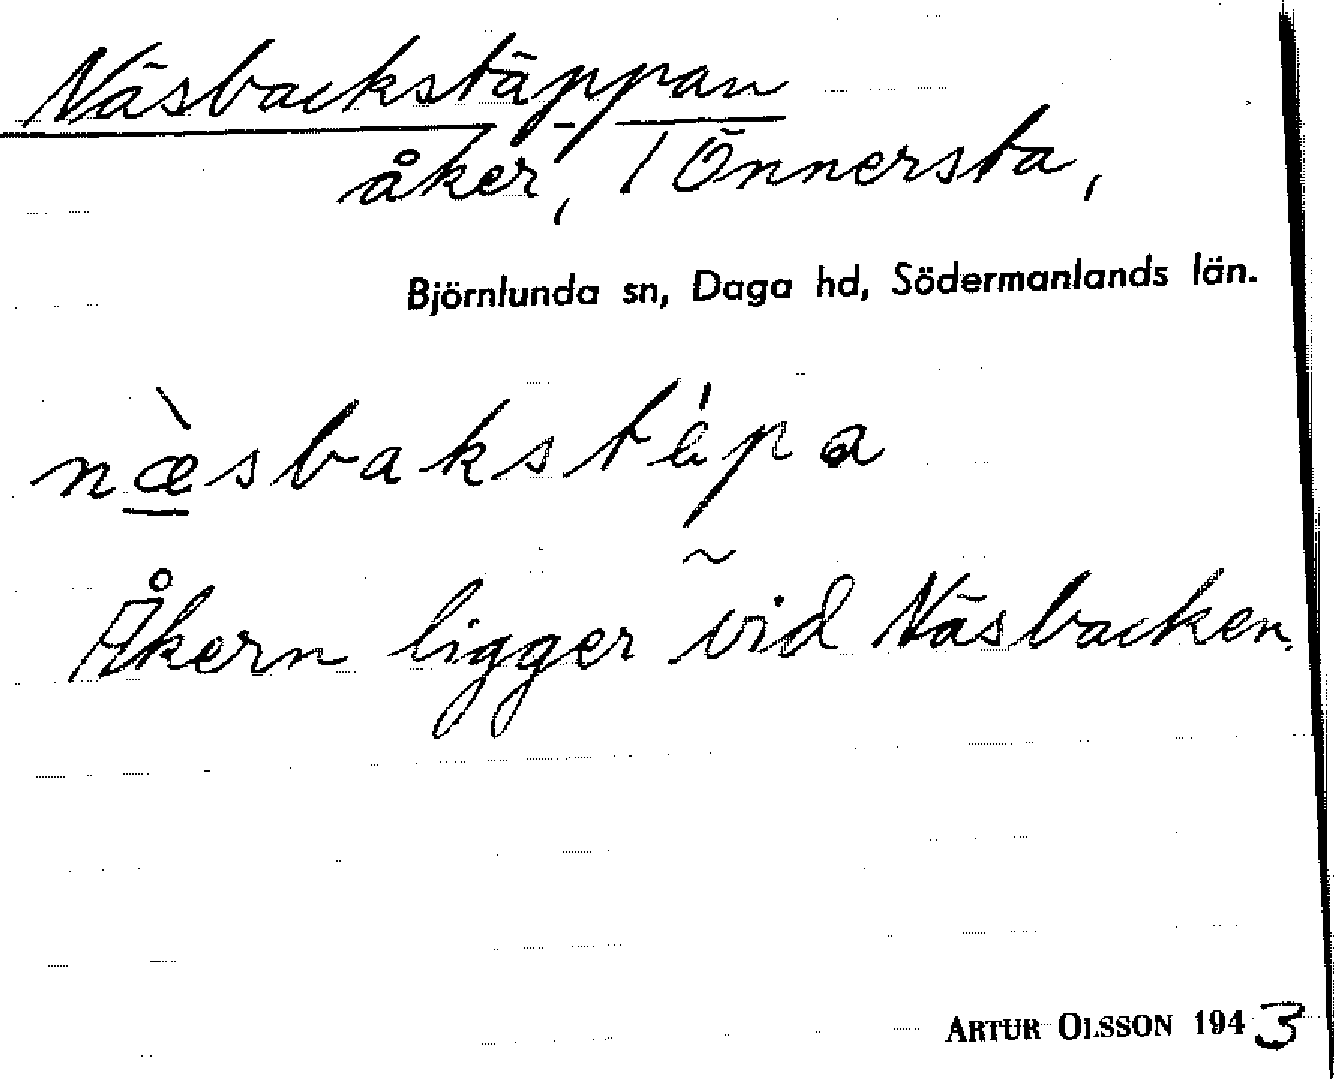 Näsbackstäppan
åker, 1 Önnersta,
Björnlunda sn, Daga hd, Södermanlands län.
næ̀sbakstä́pa
Åkern ligger vid Näsbacken.
ARTUR OLSSON 1943